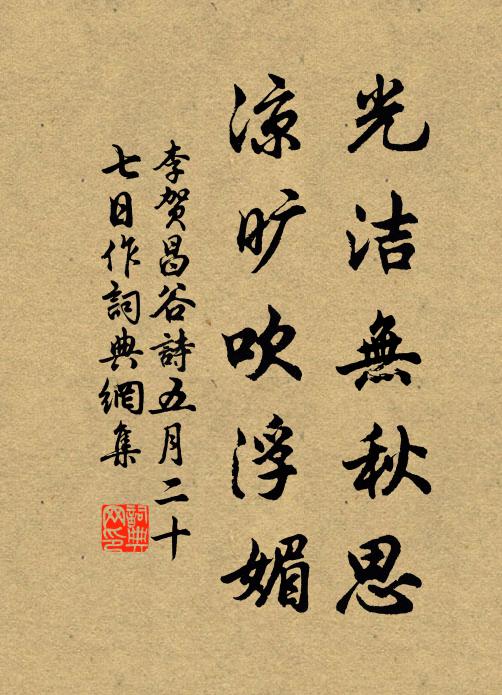 光洁無秋思
凉旷吹浮媚
李贺昌谷詩五月二十
七日作詞典網集
詞典
网印